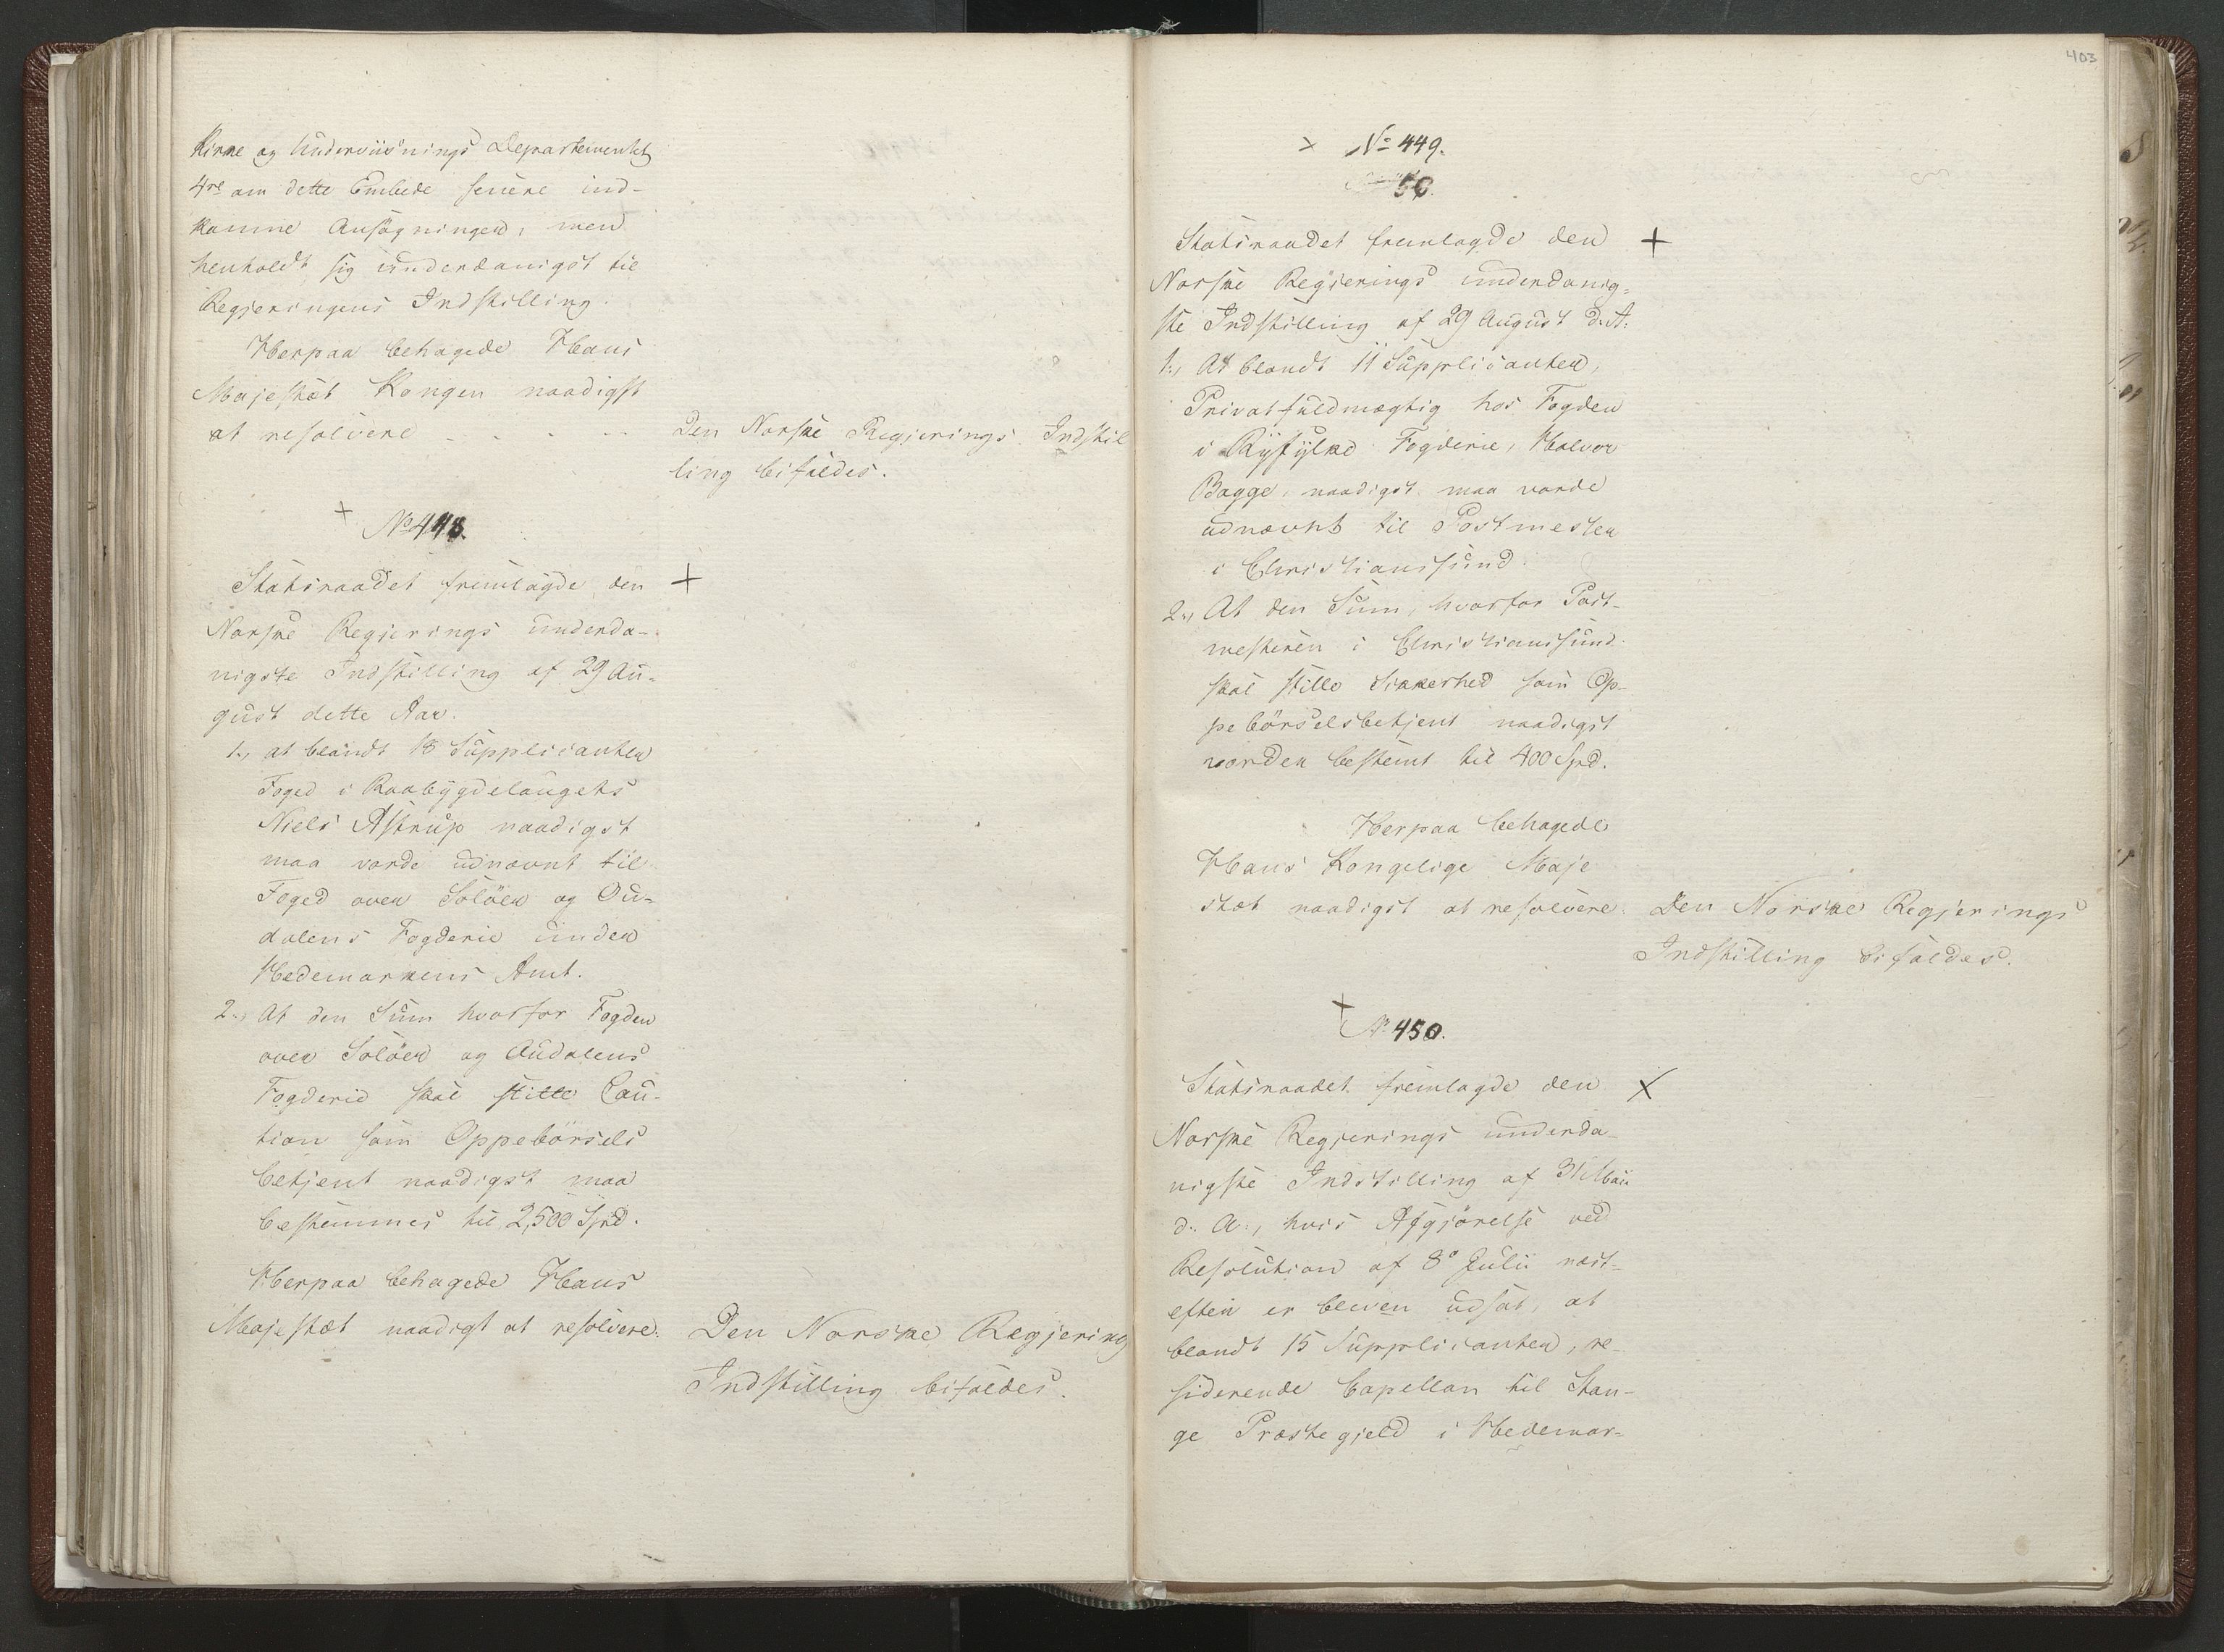 Kirke og Underviisnings Departementet
4re om dette Embede senere ind-
komne Ansøgninger, men
henholdt sig underdanigst til
Regjeringens Indstilling.
Herpaa behagede Hans
Majestæt Kongen naadigst
at resolvere - - - -
Den Norske Regjerings Indstil
ling bifaldes.
+ No 448.
Statsraadet fremlagde den +
Norske Regjerings underda-
nigste Indstilling af 29 Au-
gust dette Aar.
1., at blandt 18 Supplicanter
Foged i Raabygdelaugets
Niels Astrup naadigst
maa vorde udnævnt til
Foged over Soløer og Ou-
dalens Fogderie under
Hedemarkens Amt.
2., At den Sum hvorfor Fogden
over Soløer og Oudalens
Fogderie skal stille Cau-
tion som Oppebørsels
betjent naadigst maa
bestemmes til 2,500 Spd.
Herpaa behagede Hans
Majestæt naadigst at resolvere:
Den Norske Regjerings
Indstilling bifaldes.
403
+ No 449.
50.
Statsraadet fremlagde den +
Norske Regjerings underdanig-
ste Indstilling af 29 August d. A.
1., At blandt 11 Supplicanter,
Privatfuldmægtig hos Fogden
i Ryfylke Fogderie, Halvor
Bagge, naadigst maa vorde
udnævnt til Postmester
i Christianssund.
2., At den Sum, hvorfor Post-
mesteren i Christianssund
skal stille Sikkerhed som Op-
pebørselsbetjent naadigst
vorder bestemt til 400 Spd.
Herpaa behagede
Hans Kongelige Maje
stæt naadigst at resolvere:
Den Norske Regjerings
Indstilling bifaldes.
+ No 450.
Statsraadet fremlagde den X
Norske Regjerings underda-
nigste Indstilling af 31 Maii
d. A., hvis Afgjørelse ved
Resolution af 8de Julii næst-
efter er bleven udsat, at
blandt 15 Supplicanter, re-
siderende Capellan til Stan-
ge Præstegjeld i Hedemar-